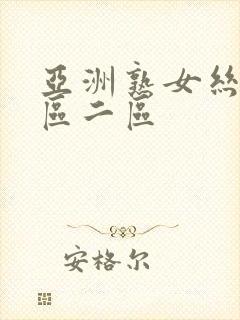 亞洲熟女絲
區二區
安格尔